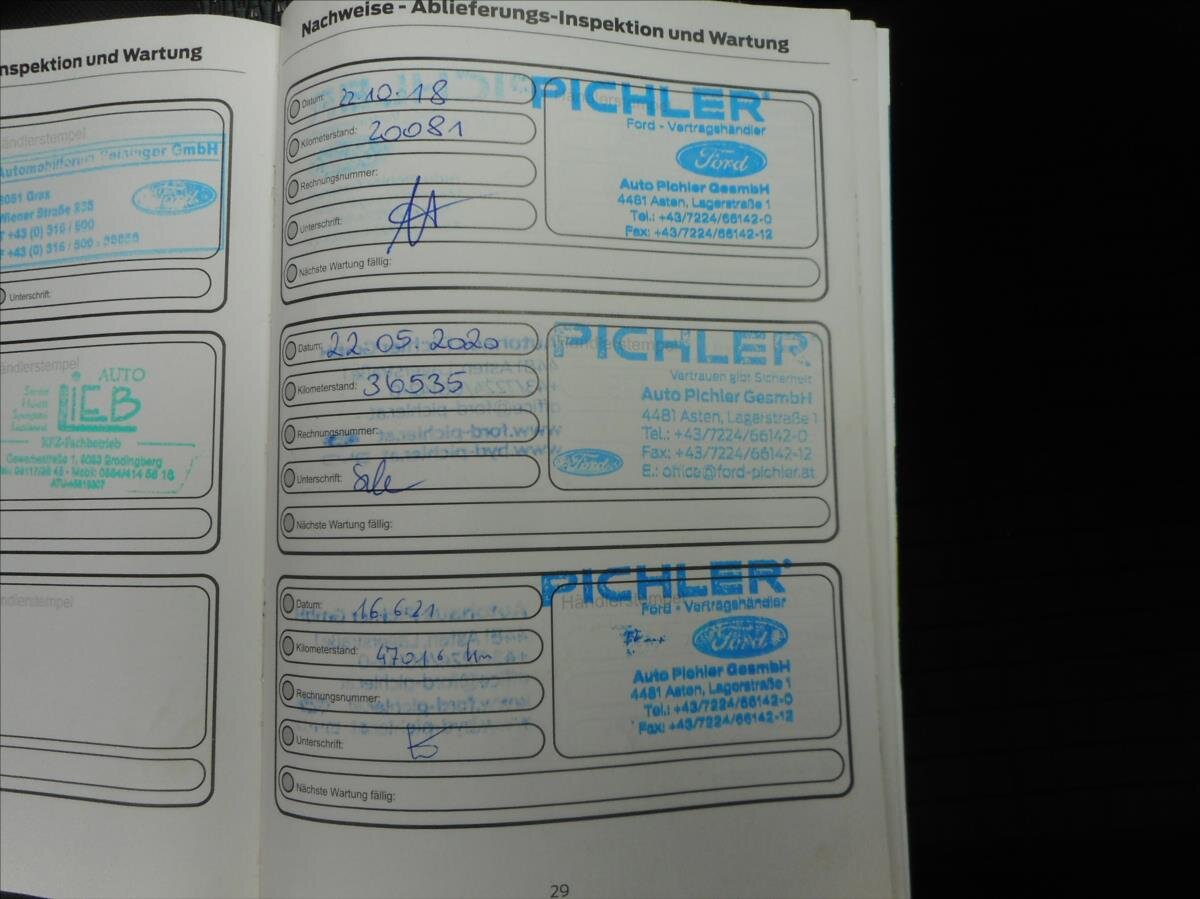 nspektion und Wartung
Händlerstempel
Automobilforum Reisinger GmbH
8051 Graz
Wiener Straße 235
T +43 (0) 316 / 500
Unterschrift:
Händlerstempel
AUTO
LIEB
Service
KFZ-Fachbetrieb
Gewerbestraße 1, 8063 Brodingberg
ändlerstempel
Nachweise - Ablieferungs-Inspektion und Wartung
Datum: 22.10.18
Kilometerstand: 20081
Rechnungsnummer:
Unterschrift:
Nächste Wartung fällig:
PICHLER
Ford - Vertragshändler
Ford
Auto Pichler GesmbH
4481 Asten, Lagerstraße 1
Tel.: +43/7224/66142-0
Fax: +43/7224/66142-12
Datum: 22.05.2020
Kilometerstand: 36535
Rechnungsnummer:
Unterschrift:
Nächste Wartung fällig:
PICHLER
Händlerstempel
Vertrauen gibt Sicherheit
Auto Pichler GesmbH
4481 Asten, Lagerstraße 1
Tel.: +43/7224/66142-0
Fax: +43/7224/66142-12
Ford
E.: office@ford-pichler.at
Datum: 16.6.21
Kilometerstand: 47016 km
Rechnungsnummer:
Unterschrift:
Nächste Wartung fällig:
PICHLER
Händlerstempel
Ford - Vertragshändler
Ford
Auto Pichler GesmbH
4481 Asten, Lagerstraße 1
Tel.: +43/7224/66142-0
Fax: +43/7224/66142-12
29